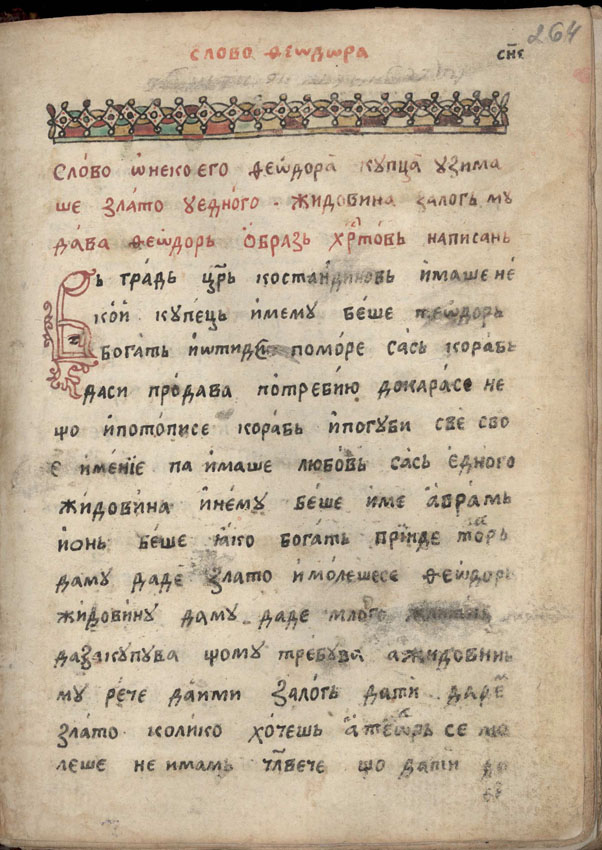 264
слово ѳеѡдѡра
сн҃є
слово ѡнекоего ѳеѡдора купца узима
ше злато уедного · жидовина залогь му
дава ѳеѡдорь ѡбразь хртⷭ҇овь написань
Вь градь цр҃ь костандиновь имаше не
кои купець имему беше теѡдорь
богать иѡтиде поморе сась корабь
даси продава потребию докарасе не
що ипотописе корабь ипогуби све сво
е имение па имаше любовь сась едного
жидовина инему беше име аврамь
ионь беше ꙗко богать прииде
даму даде злато имолешесе ѳеѡдорь
жидовину даму даде млого
дазакупува щому требува ажидовинь
му рече даими залогь дати
злато колико хочешь се мо
леше не имамь чл҃вече що дати